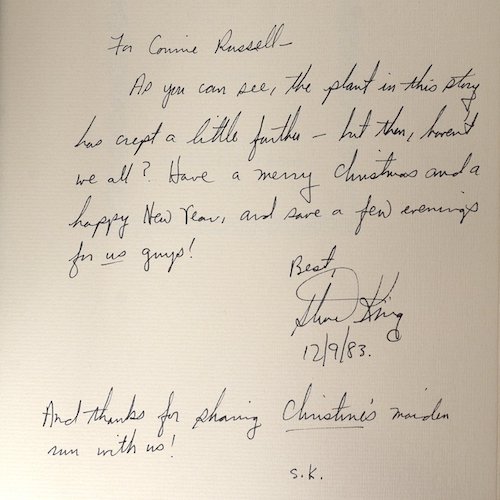 For Connie Russell—
As you can see, the plant in this story
has crept a little further — but then, haven't
we all? Have a merry Christmas and a
happy New Year, and save a few evenings
for us guys!
Best,
Stephen King
12/9/83.
And thanks for sharing Christine's maiden
run with us!
S.K.